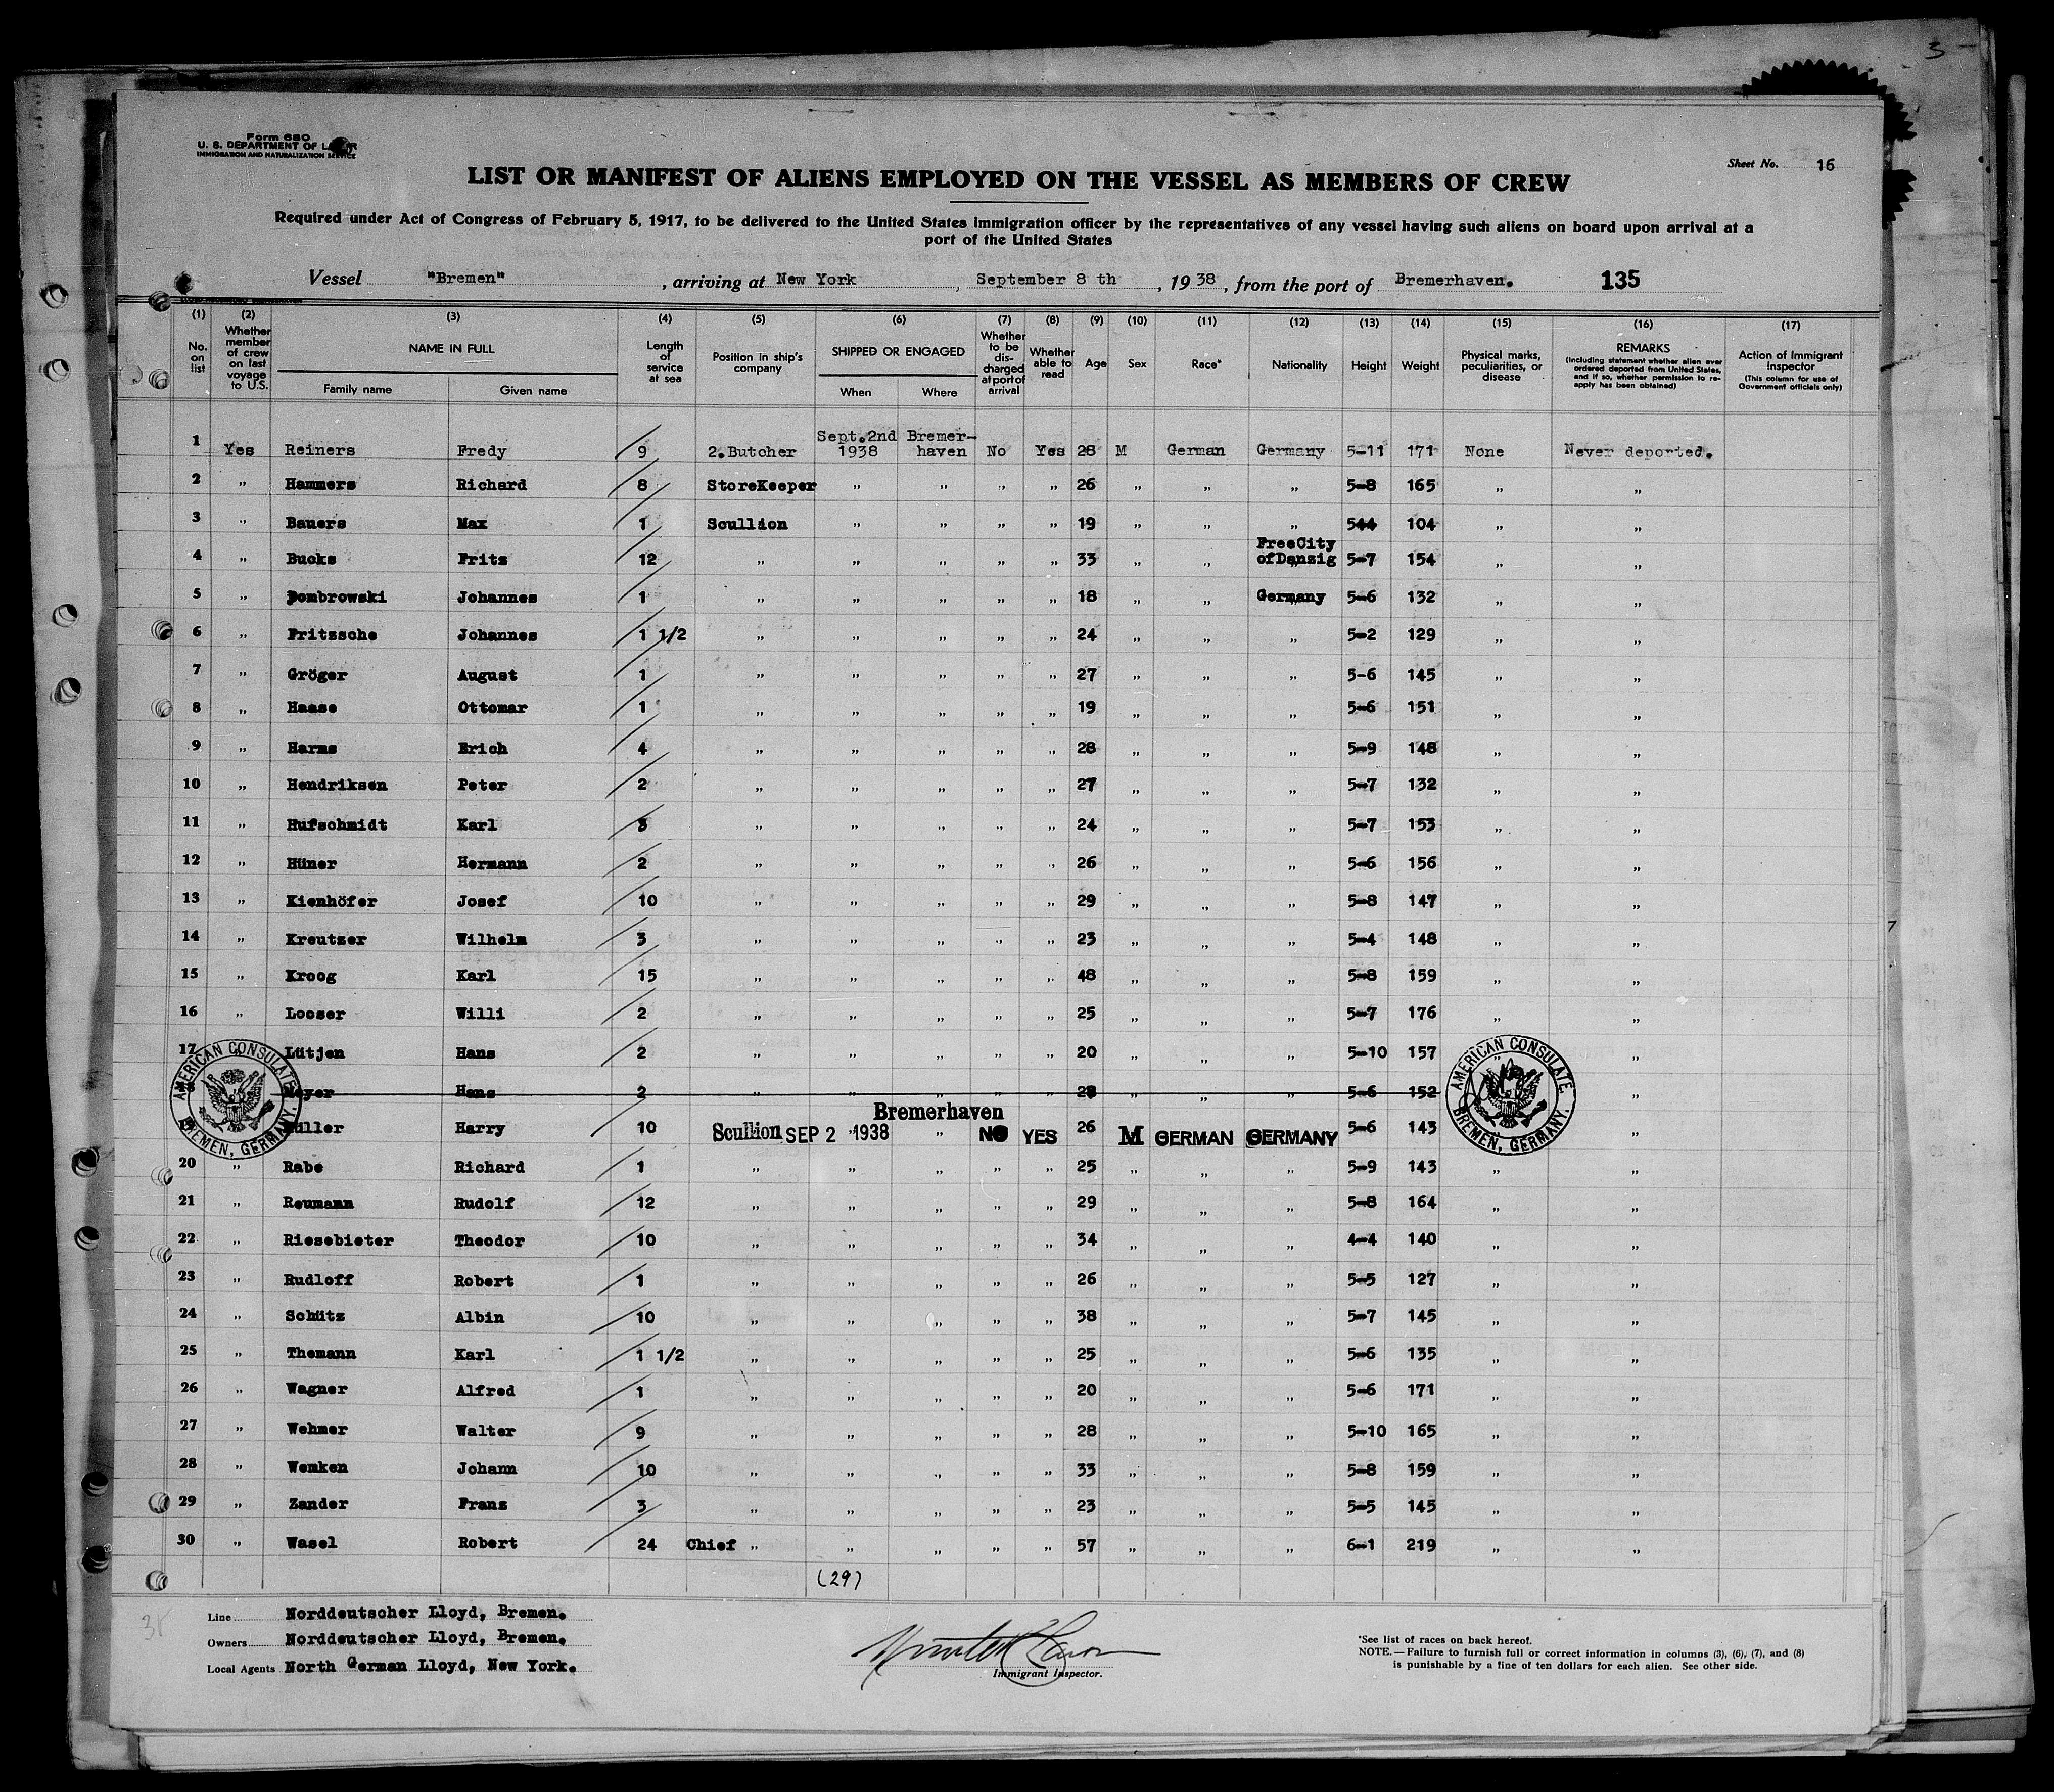 3
Form 680
U. S. DEPARTMENT OF LABOR
IMMIGRATION AND NATURALIZATION SERVICE
Sheet No. 16
LIST OR MANIFEST OF ALIENS EMPLOYED ON THE VESSEL AS MEMBERS OF CREW
Required under Act of Congress of February 5, 1917, to be delivered to the United States immigration officer by the representatives of any vessel having such aliens on board upon arrival at a
port of the United States
Vessel "Bremen" , arriving at New York , September 8 th , 1938 , from the port of Bremerhaven. 135
(1) No. on list
(2) Whether member of crew on last voyage to U.S.
(3) NAME IN FULL
Family name Given name
(4) Length of service at sea
(5) Position in ship's company
(6) SHIPPED OR ENGAGED
When Where
(7) Whether to be discharged at port of arrival
(8) Whether able to read
(9) Age
(10) Sex
(11) Race*
(12) Nationality
(13) Height
(14) Weight
(15) Physical marks, peculiarities, or disease
(16) REMARKS
(Including statement whether alien ever ordered deported from United States, and if so, whether permission to reapply has been obtained)
(17) Action of Immigrant Inspector
(This column for use of Government officials only)
1 Yes Reiners Fredy 9 2.Butcher Sept.2nd 1938 Bremer-haven No Yes 28 M German Germany 5-11 171 None Never deported.
2 " Hammers Richard 8 StoreKeeper " " " " 26 " " " 5-8 165 " "
3 " Bauers Max 1 Scullion " " " " 19 " " " 544 104 " "
4 " Bucks Fritz 12 " " " " " 33 " " FreeCity ofDanzig 5-7 154 " "
5 " Dombrowski Johannes 1 " " " " " 18 " " Germany 5-6 132 " "
6 " Fritzsche Johannes 1 1/2 " " " " " 24 " " " 5-2 129 " "
7 " Gröger August 1 " " " " " 27 " " " 5-6 145 " "
8 " Haase Ottomar 1 " " " " " 19 " " " 5-6 151 " "
9 " Harms Erich 4 " " " " " 28 " " " 5-9 148 " "
10 " Hendriksen Peter 2 " " " " " 27 " " " 5-7 132 " "
11 " Hufschmidt Karl 3 " " " " " 24 " " " 5-7 153 " "
12 " Hüner Hermann 2 " " " " " 26 " " " 5-6 156 " "
13 " Kienhöfer Josef 10 " " " " " 29 " " " 5-8 147 " "
14 " Kreutzer Wilhelm 3 " " " " " 23 " " " 5-4 148 " "
15 " Kroog Karl 15 " " " " " 48 " " " 5-8 159 " "
16 " Looser Willi 2 " " " " " 25 " " " 5-7 176 " "
17 Lütjen Hans 2 " " " " " 20 " " " 5-10 157 " "
Meyer Hans 2 " " " " " 28 " " " 5-6 152
Müller Harry 10 Scullion SEP 2 1938 Bremerhaven NO YES 26 M GERMAN GERMANY 5-6 143 "
AMERICAN CONSULATE BREMEN, GERMANY.
AMERICAN CONSULATE BREMEN, GERMANY.
20 " Rabe Richard 1 " " " " " 25 " " " 5-9 143 " "
21 " Reumann Rudolf 12 " " " " " 29 " " " 5-8 164 " "
22 " Riesebieter Theodor 10 " " " " " 34 " " " 4-4 140 " "
23 " Rudloff Robert 1 " " " " " 26 " " " 5-5 127 " "
24 " Schütz Albin 10 " " " " " 38 " " " 5-7 145 " "
25 " Themann Karl 1 1/2 " " " " " 25 " " " 5-6 135 " "
26 " Wagner Alfred 1 " " " " " 20 " " " 5-6 171 " "
27 " Wehmer Walter 9 " " " " " 28 " " " 5-10 165 " "
28 " Wemken Johann 10 " " " " " 33 " " " 5-8 159 " "
29 " Zander Franz 3 " " " " " 23 " " " 5-5 145 " "
30 " Wasel Robert 24 Chief " " " " " 57 " " " 6-1 219 " "
(29)
Line Norddeutscher Lloyd, Bremen.
Owners Norddeutscher Lloyd, Bremen.
Local Agents North German Lloyd, New York.
Immigrant Inspector.
*See list of races on back hereof.
NOTE.—Failure to furnish full or correct information in columns (3), (6), (7), and (8)
is punishable by a fine of ten dollars for each alien. See other side.